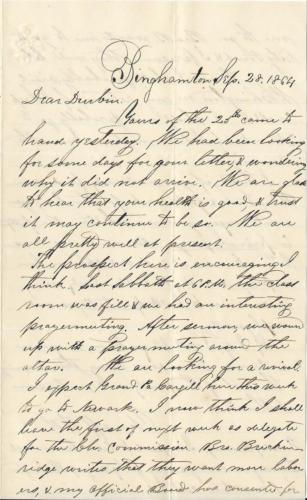 Binghamton Sep. 28. 1864
Dear Durbin.
Yours of the 25th came to
hand yesterday. We had been looking
for some days for your letter, & wondering
why it did not arrive. We are glad
to hear that your health is good & trust
it may continue to be so. We are
all pretty well at present.
The prospect here is encouraging I
think. Last Sabbath at 6 P.M. the class
room was fill & we had an interesting
prayermeeting. After sermon, we wound
up with a prayermeeting around the
altar. We are looking for a revival.
I expect Grand Pa Cargill here this week
to go to Newark. I now think I shall
leave the first of next week as delegate
for the Chr. Commission. Bro. Breckin-
ridge writes that they want more labor-
ers, & my official Board has consented